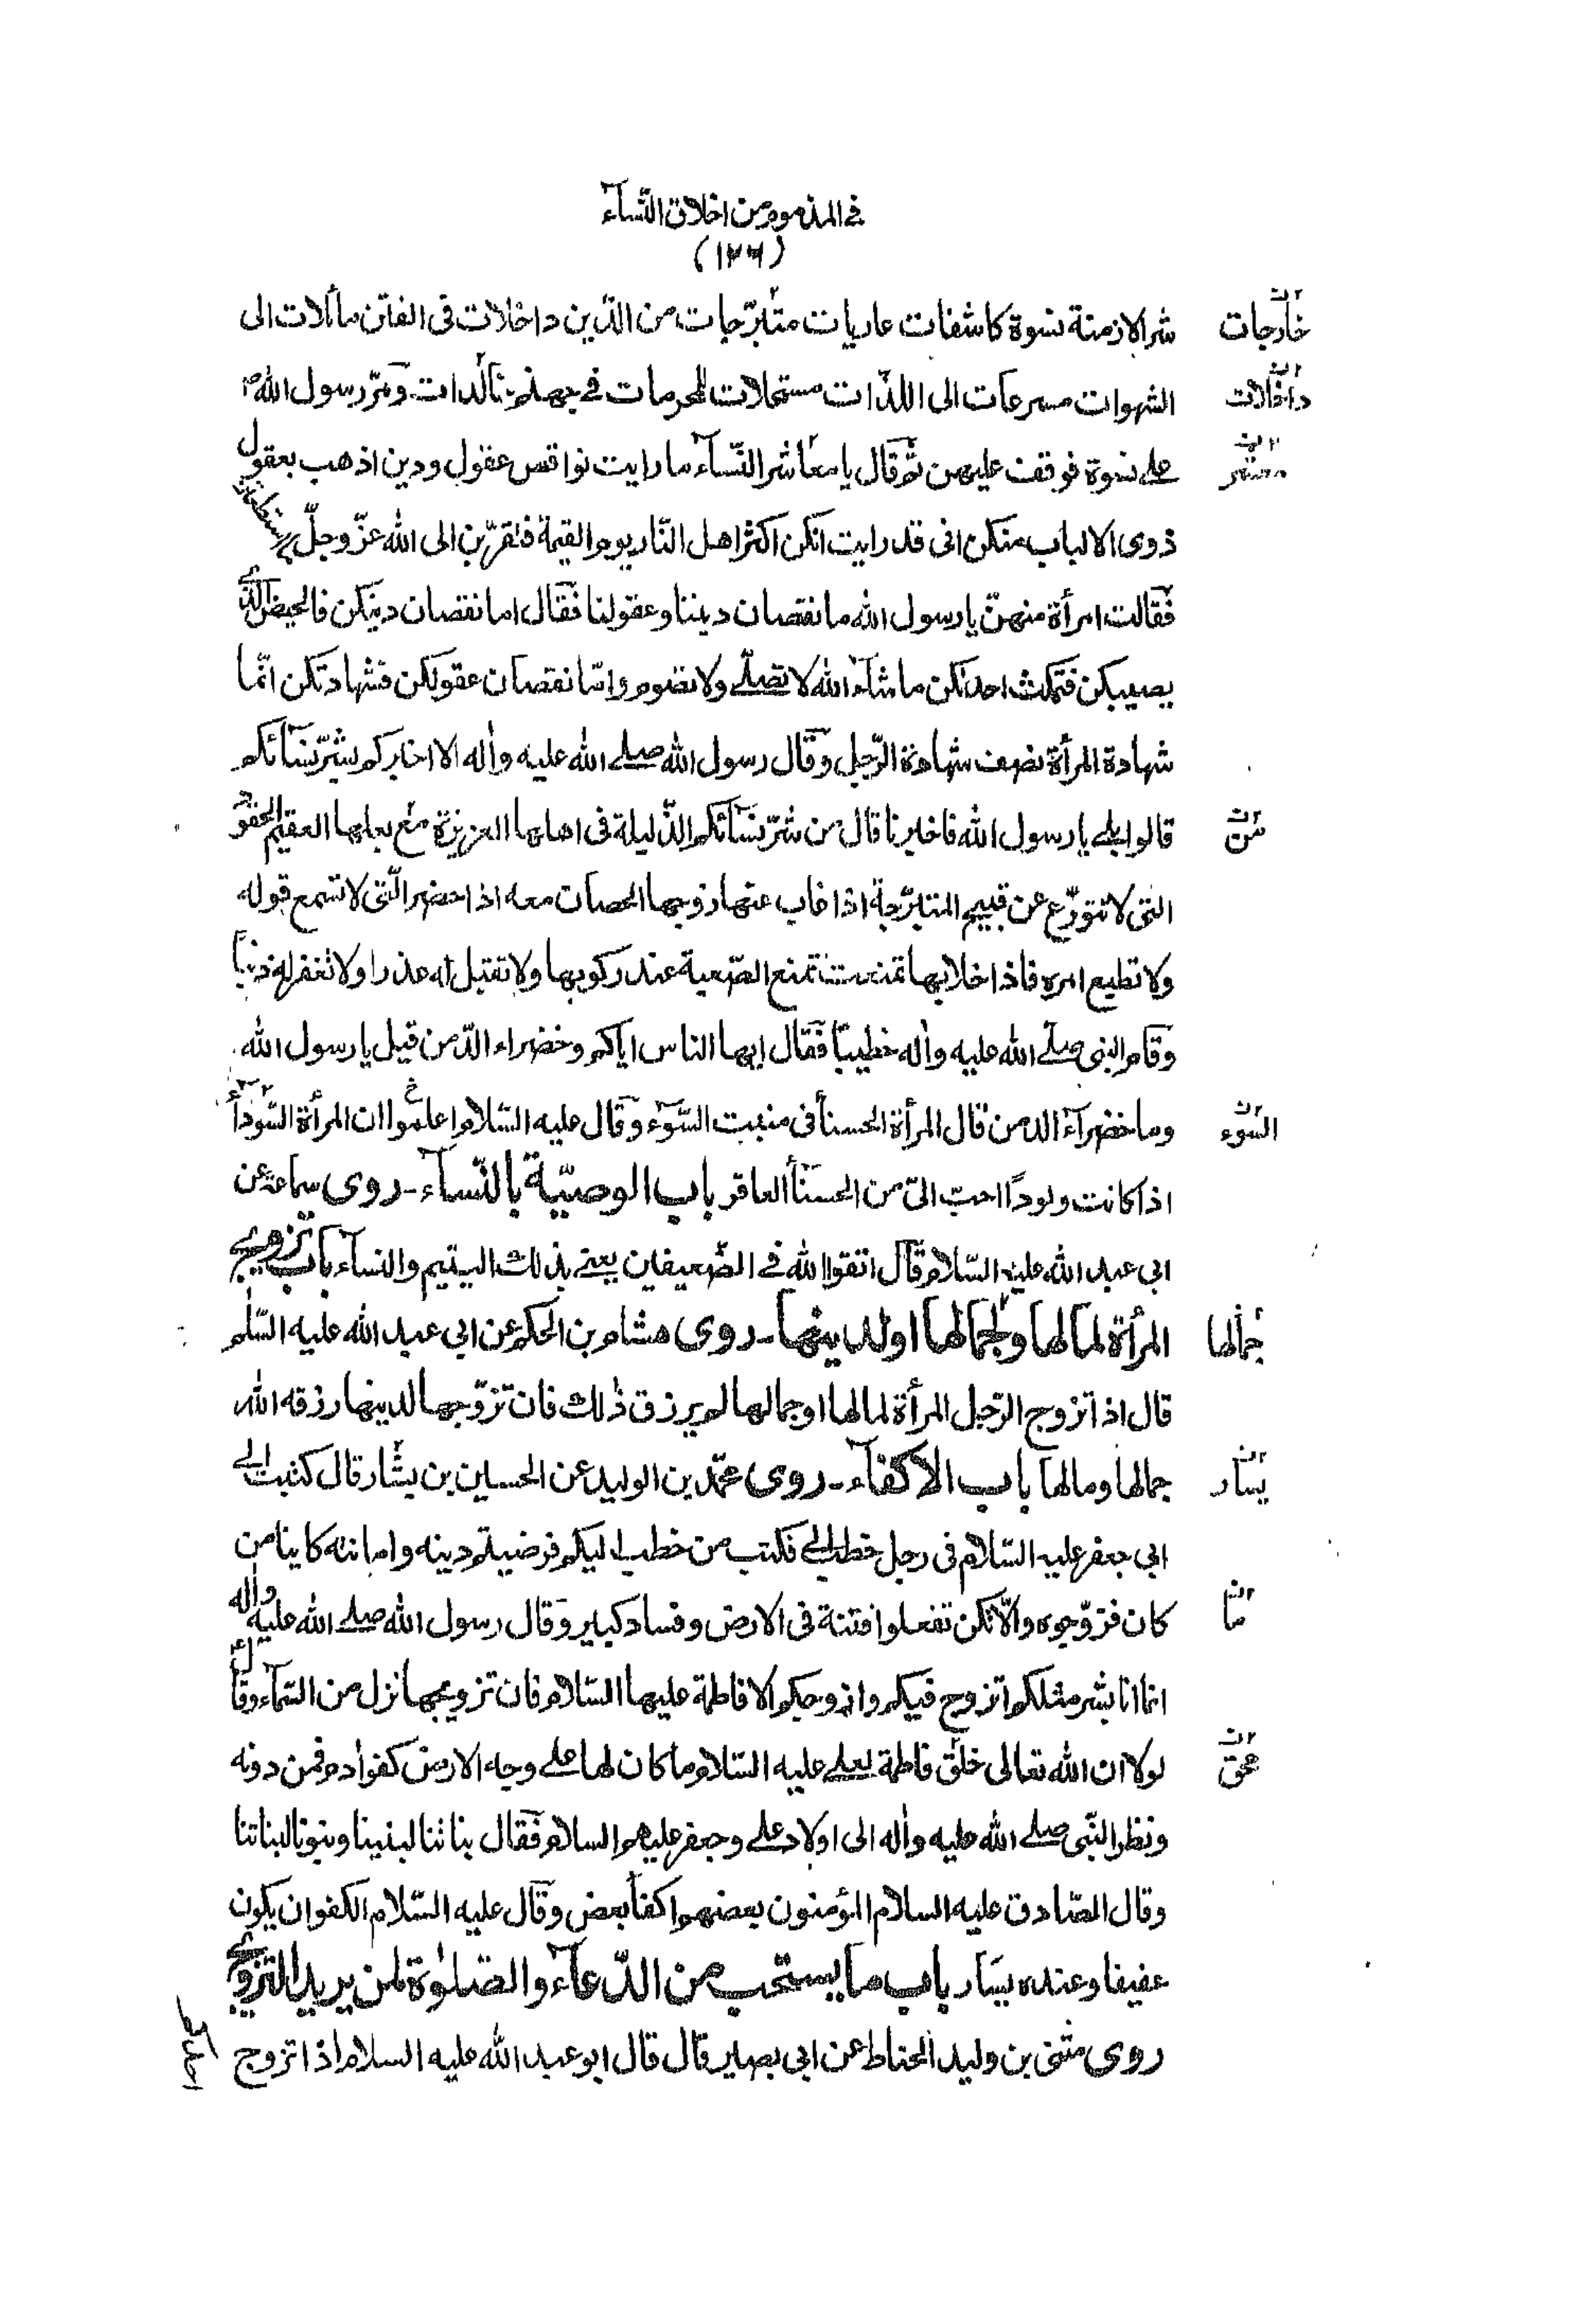 في المذموم من اخلاق النّسآء
(١٢٦)
شر الازمنة نسوة كاشفات عاريات متبرّجات من الدّين داخلات فى الفتن مائلات الى
خارجات
الشهوات مسرعات الى اللذّات مستحلات للمحرمات في جهنم خالدات ومرّ رسول اللهص
داخلات
على نسوة فوقف عليهن ثم قال يا معاشر النّسآء ما رايت نواقص عقول ودين اذهب بعقول
معشر
ذوى الالباب منكن انى قد رايت انكن اكثر اهل النّار يوم القيمة فتقرّبن الى الله عزّ وجلّ ما استطعتن
فقالت امرأة منهنّ يا رسول الله ما نقصان ديننا وعقولنا فقال اما نقصان دينكن فالحيض الّذي
يصيبكن فتمكث احداكن ما شآء الله لا تصلّي ولا تصوم وامّا نقصان عقولكن فشهادتكن انّما
شهادة المرأة نصف شهادة الرّجل وقال رسول الله صلى الله عليه واله الا اخبركم بشرّ نسائكم
قالوا بلى يا رسول الله فاخبرنا قال من شرّ نسائكم الذّليلة فى اهلها العزيزة مع بعلها العقيم الحقود
من
التى لا تتورّع عن قبيح المتبرّجة اذا غاب عنها زوجها الحصان معه اذا حضر الّتى لا تسمع قوله
ولا تطيع امره فاذا خلا بها تمنعت تمنع الصّعبة عند ركوبها ولا تقبل له عذرا ولا تغفر له ذنبا
وقام النبى صلى الله عليه واله خطيبًا فقال ايها الناس اياكم وخضراء الدّمن قيل يا رسول الله
وما خضرآء الدمن قال المرأة الحسنأ فى منبت السّوء وقال عليه السّلام اعلموا ان المرأة السّودأ
السوء
اذا كانت ولودًا احبّ الىّ من الحسنأ العاقر باب الوصيّة بالنّسآء ـ روى سماعة عن
ابى عبد الله عليه السّلام قال اتقوا الله في الضّعيفين يعنى بذلك اليتيم والنسآء باب تزويج
المرأة لمالها ولجمالها او لدينها ـ روى هشام بن الحكم عن ابي عبد الله عليه السّلم
جمالها
قال اذا تزوج الرّجل المرأة لمالها او جمالها لم يرزق ذلك فان تزوّجها لدينها رزقه الله
جمالها ومالها باب الاكفآء ـ روى محمّد بن الوليد عن الحسين بن بشّار قال كتبت الى
يسار
ابى جعفر عليه السّلام فى رجل خطب الي فكتب من خطب اليكم فرضيتم دينه وامانته كاينا من
كان فزوّجوه والّا تكن تفعلوا فتنة فى الارض وفساد كبير وقال رسول الله صلى الله عليه واله
ما
انما انا بشر مثلكم اتزوج فيكم وازوجكم الا فاطمة عليها السّلام فان تزويجها نزل من السّمآء وقال
لولا ان الله تعالى خلق فاطمة لعلى عليه السّلام ما كان لها على وجه الارض كفو ادم فمن دونه
ونظر النّبى صلى الله عليه واله الى اولاد على وجعفر عليهم السلام فقال بناتنا لبنينا وبنونا لبناتنا
وقال الصّادق عليه السلام المؤمنون بعضهم اكفأ بعض وقال عليه السّلام الكفو ان يكون
عفيفا وعنده يسار باب ما يستحب من الدّعآء والصّلوة لمن يريد التزويج
روى مثنى بن وليد الحناط عن ابى بصير قال قال ابو عبد الله عليه السلام اذا تزوج
احدكم